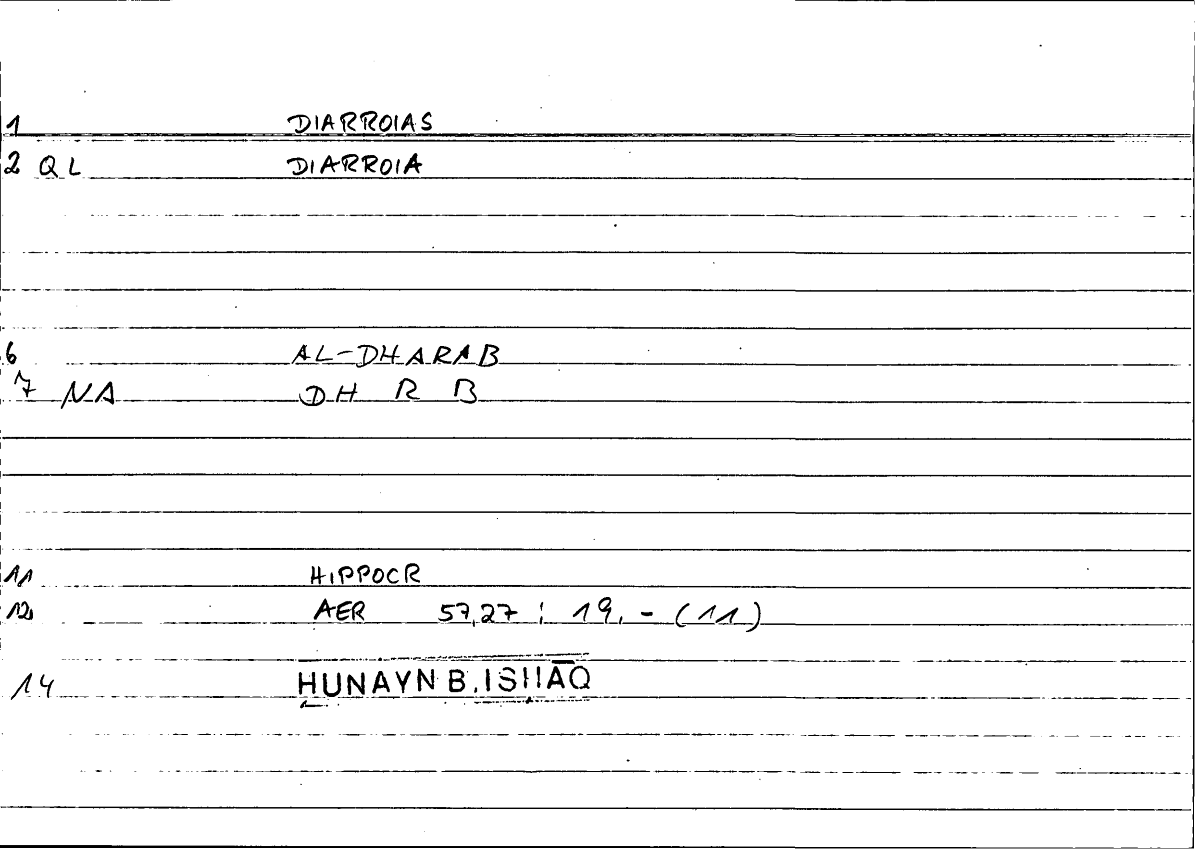 1 DIARROIAS
2 QL DIARROIA
6 AL-DHARAB
7 NA DH R B
11 HIPPOCR
12 AER 57,27 ; 19, - (11)
14 HUNAYN B. ISḤĀQ